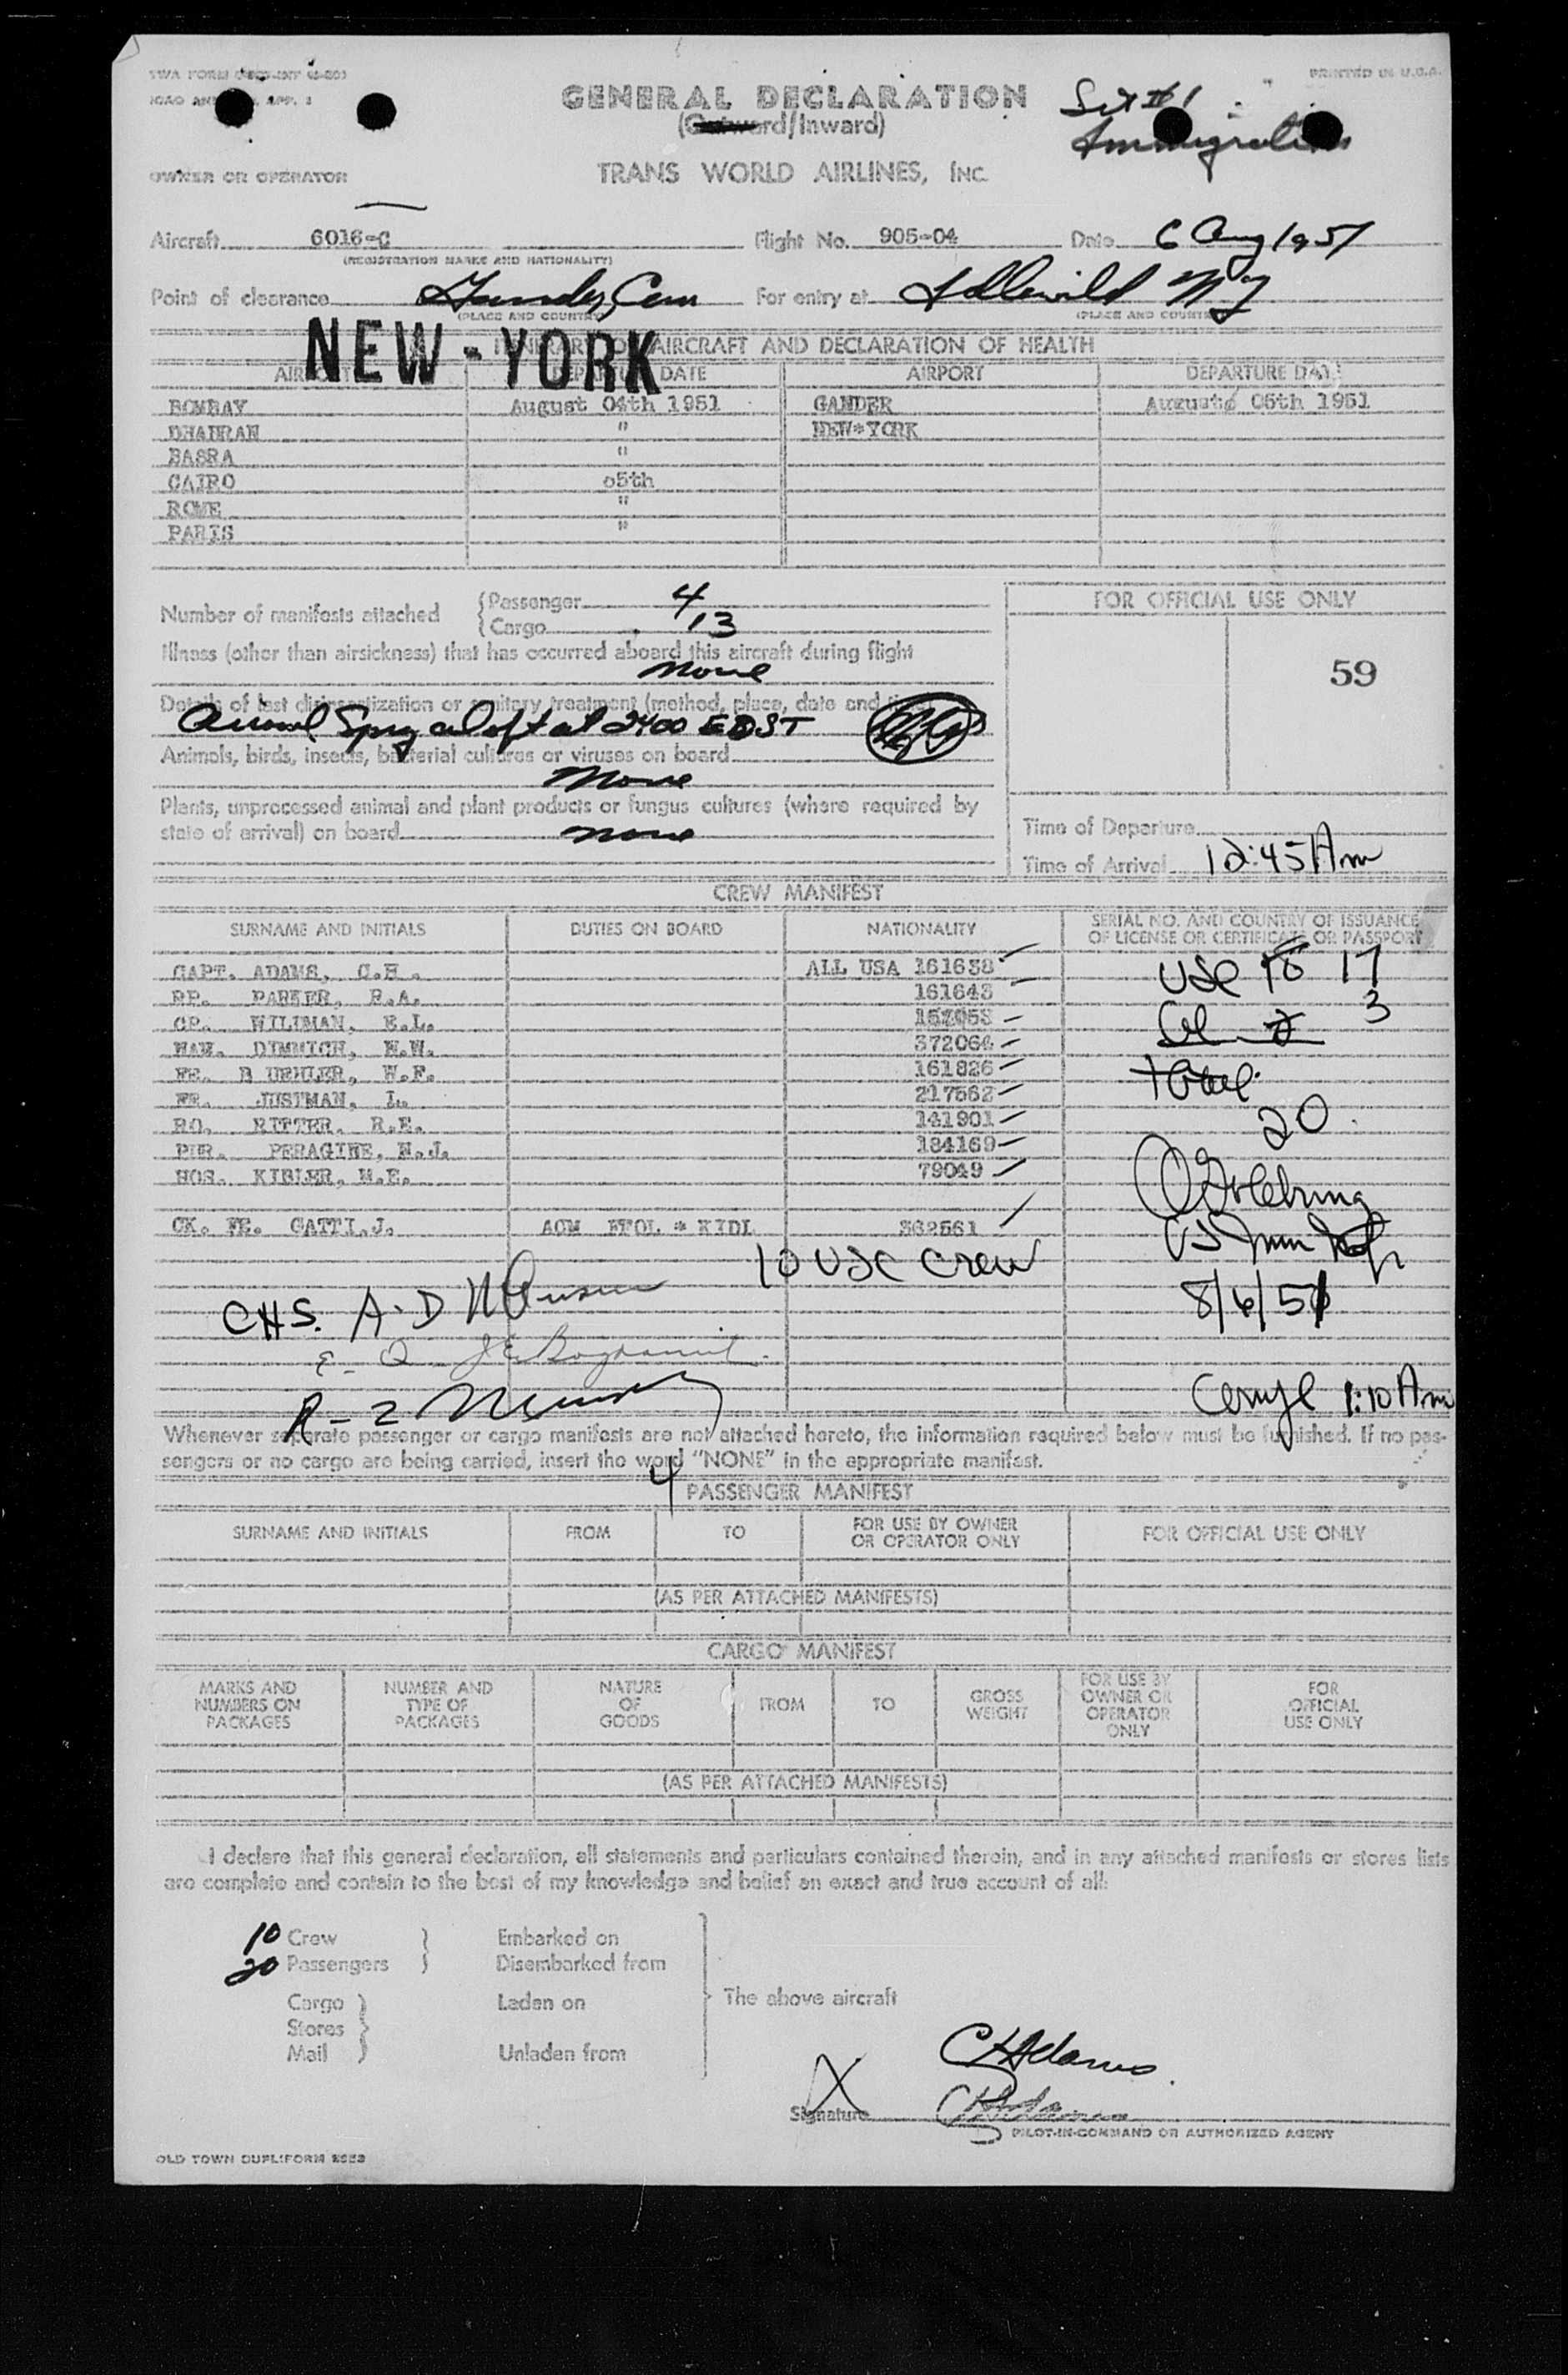 PRINTED IN U.S.A.
GENERAL DECLARATION
Set #1
(Outward/Inward)
Immigration
OWNER OR OPERATOR
TRANS WORLD AIRLINES, INC.
Aircraft 6016-C Flight No. 905-04 Date 6 Aug 1951
(REGISTRATION MARKS AND NATIONALITY)
Point of clearance Gander, Can For entry at Idlewild NY
(PLACE AND COUNTRY) (PLACE AND COUNTRY)
NEW-YORK
ITINERARY OF AIRCRAFT AND DECLARATION OF HEALTH
AIRPORT DEPARTURE DATE AIRPORT DEPARTURE DATE
BOMBAY August 04th 1951 GANDER August 05th 1951
DHAHRAN " NEW*YORK
BASRA "
CAIRO o5th
ROME "
PARIS "
Number of manifests attached Passenger 4
Cargo 13
FOR OFFICIAL USE ONLY
59
Illness (other than airsickness) that has occurred aboard this aircraft during flight
None
Details of last disinsectization or sanitary treatment (method, place, date and time)
Aerosol Spray aloft at 2400 EDST
Animals, birds, insects, bacterial cultures or viruses on board
None
Plants, unprocessed animal and plant products or fungus cultures (where required by
state of arrival) on board None
Time of Departure
Time of Arrival 12:45 Am
CREW MANIFEST
SURNAME AND INITIALS DUTIES ON BOARD NATIONALITY SERIAL NO. AND COUNTRY OF ISSUANCE
OF LICENSE OR CERTIFICATE OR PASSPORT
CAPT. ADAMS, C.H. ALL USA 161638 USC 17
PP. PARKER, R.A. 161643 3
CP. WILIMAN, E.L.
NAV. DIMMICH, W.W. 372064
FE. B UEHLER, W.F. 161826 total
FE. JUSTMAN, L. 217562
RO. RITTER, R.E. 141901 20
PUR. PERAGINE, N.J. 184169
HOS. KIBLER, M.E. 79049
CK. FE. GATTI.J. ACM FCOL * KIDL 362561
US Imm Insp
10 USC Crew
8/6/51
CHS. A.D
R-2
1:10 Am
Whenever separate passenger or cargo manifests are not attached hereto, the information required below must be furnished. If no pas-
sengers or no cargo are being carried, insert the word "NONE" in the appropriate manifest.
4
PASSENGER MANIFEST
SURNAME AND INITIALS FROM TO FOR USE BY OWNER
OR OPERATOR ONLY FOR OFFICIAL USE ONLY
(AS PER ATTACHED MANIFESTS)
CARGO MANIFEST
MARKS AND
NUMBERS ON
PACKAGES
NUMBER AND
TYPE OF
PACKAGES
NATURE
OF
GOODS
FROM
TO
GROSS
WEIGHT
FOR USE BY
OWNER OR
OPERATOR
ONLY
FOR
OFFICIAL
USE ONLY
(AS PER ATTACHED MANIFESTS)
I declare that this general declaration, all statements and particulars contained therein, and in any attached manifests or stores lists
are complete and contain to the best of my knowledge and belief an exact and true account of all:
10 Crew Embarked on
20 Passengers Disembarked from
Cargo Laden on The above aircraft
Stores
Mail Unladen from
CHAdams
X
Signature CHAdams
PILOT-IN-COMMAND OR AUTHORIZED AGENT
OLD TOWN DUPLIFORM